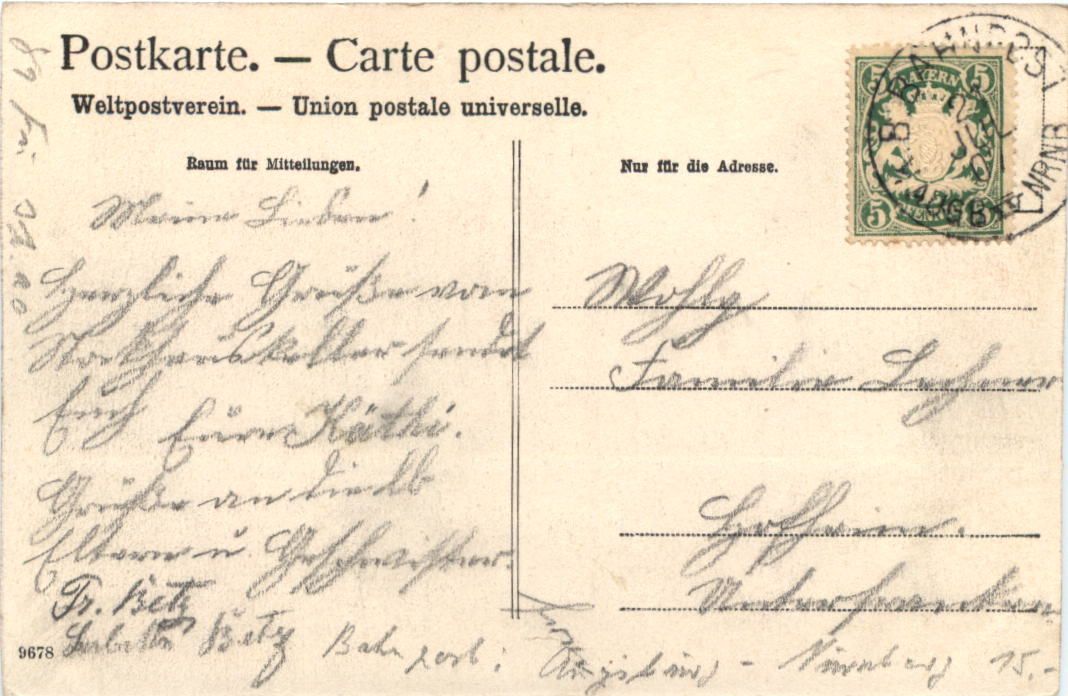 Postkarte. — Carte postale.
Weltpostverein. — Union postale universelle.
Raum für Mitteilungen.
Meine Lieben!
Herzliche Grüße vom
Stockhauskeller sendet
Euch Eure Käthi.
Grüße an die lb
Eltern u. Geschwister.
Fr. Betz
Babette Betz
9678
Nur für die Adresse.
BAYERN
5 5
5
BAHNPOST
Wohlg
Familie Lechner
Hofheim.
Unterfranken
Bahnpost: Augsburg - Nürnberg 15.-